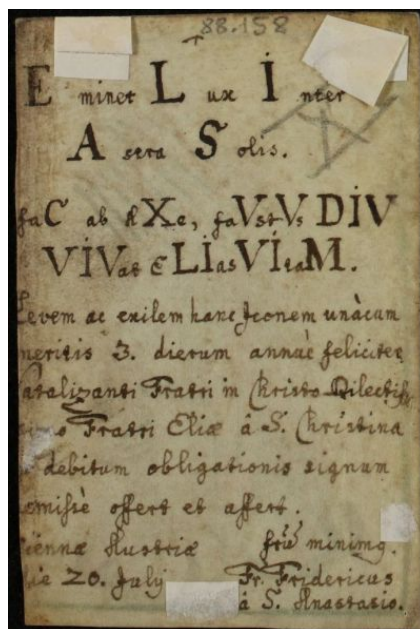 88.158
E minet L ux I nter
A stra S olis.
faC ab AXe, faVstVs DIV
VIVat ELIas VItaM.
Levem ac exilem hanc Iconem unàcum
meritis 3. dierum annuè feliciter
Natalizanti Fratri in Christo Dilectiss
Fratri Eliæ à S. Christina
debitum obligationis signum
offert et affert.
Viennæ Austriæ minimq.
Die 20. July Fr. Fridericus
à S. Anastasio.